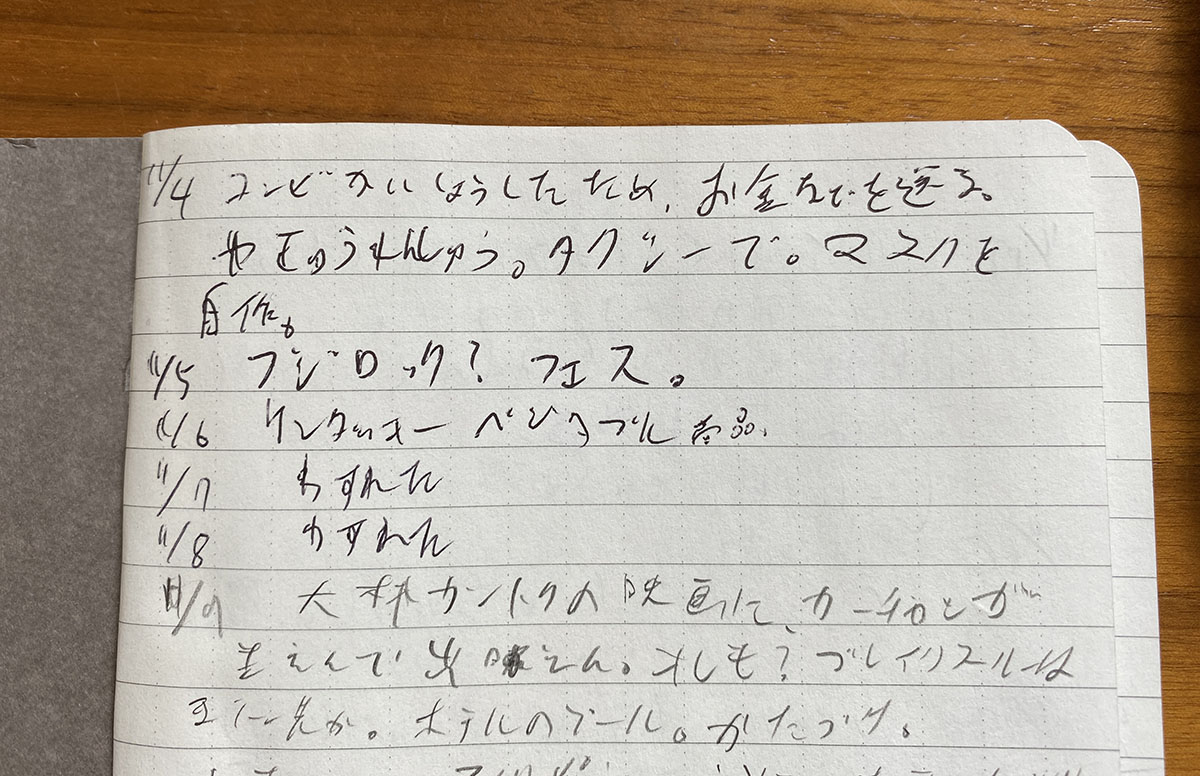 11/4 コンビかいしょうしたため、お金などを送る。
やきゅうれんしゅう。タクシーで。マスクを
自作。
11/5 フジロック? フェス。
11/6 ケンタッキー ベジタブル商品、
11/7 わすれた
11/8 わすれた
11/9 大林カントクの映画に、カーチャンとが
出 オレも? ブレイク
先か。ホテルのプール。かたづけ。